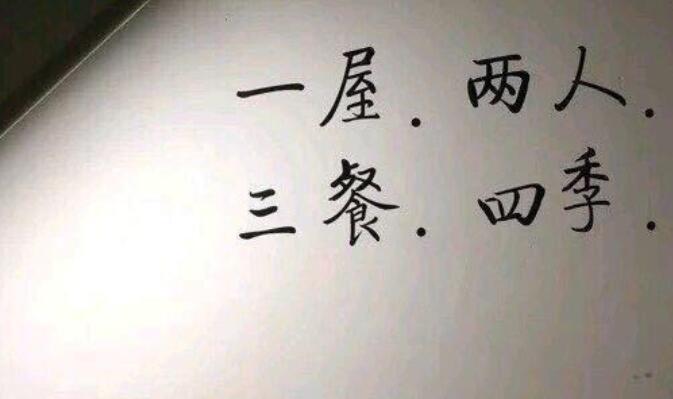 一屋.两人.
三餐.四季.